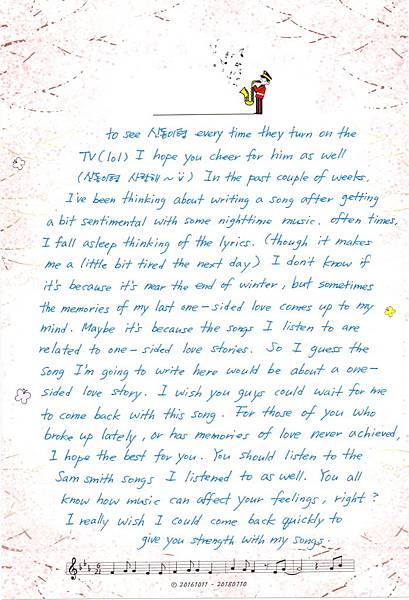 to see 신동이형 every time they turn on the
TV (lol) I hope you cheer for him as well
(신동이형 사랑해~ ü) In the past couple of weeks,
I've been thinking about writing a song after getting
a bit sentimental with some nighttime music. often times,
I fall asleep thinking of the lyrics. (though it makes
me a little bit tired the next day) I don't know if
it's because it's near the end of winter, but sometimes
the memories of my last one-sided love comes up to my
mind. Maybe it's because the songs I listen to are
related to one-sided love stories. So I guess the
song I'm going to write here would be about a one-
sided love story. I wish you guys could wait for me
to come back with this song. For those of you who
broke up lately, or has memories of love never achieved,
I hope the best for you. You should listen to the
Sam smith songs I listened to as well. You all
know how music can affect your feelings, right?
I really wish I could come back quickly to
give you strength with my songs.
© 20161011 - 20180710